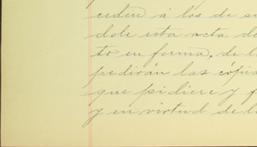 ceden á los de su
dole esta acta do
to en forma, de l
pedirán las cópia
que pidiere y f
y en virtud de l